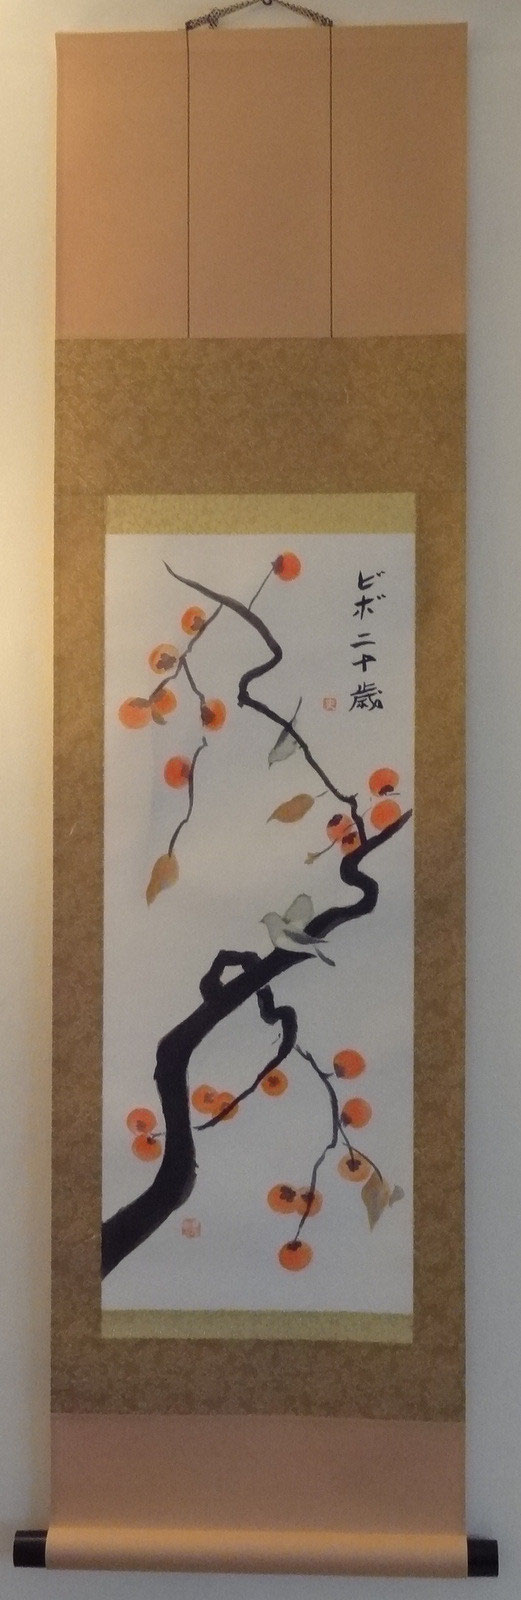 ビボ二十歳